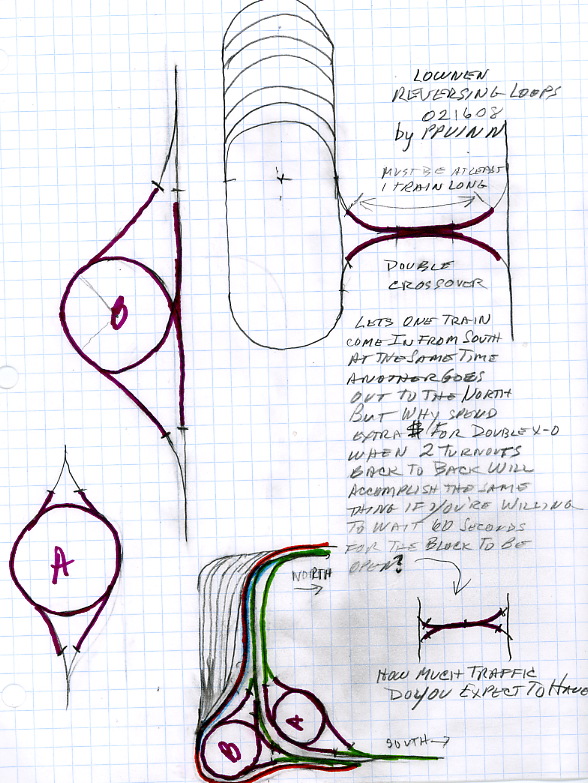 LOWNEN
REVERSING LOOPS
021608
by PPUINN
MUST BE AT LEAST
1 TRAIN LONG
DOUBLE
CROSSOVER
LETS ONE TRAIN
COME IN FROM SOUTH
AT THE SAME TIME
ANOTHER GOES
OUT TO THE NORTH
BUT WHY SPEND
EXTRA $ FOR DOUBLE X-O
WHEN 2 TURNOUTS
BACK TO BACK WILL
ACCOMPLISH THE SAME
THING IF YOU'RE WILLING
TO WAIT 60 SECONDS
FOR THE BLOCK TO BE
OPEN?
HOW MUCH TRAFFIC
DO YOU EXPECT TO HAVE
B
A
NORTH
A
B
SOUTH